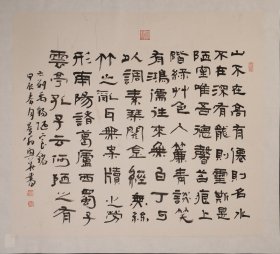 山不在高有僊則名水
不在深有龍則靈斯是
陋室唯吾德馨苔痕上
階綠草色入簾青談笑
有鴻儒往來無白丁可
以調素琴閱金經無絲
竹之亂耳無案牘之勞
形南陽諸葛廬西蜀子
雲亭孔子云何陋之有
劉禹錫陋室銘
甲辰春月 書